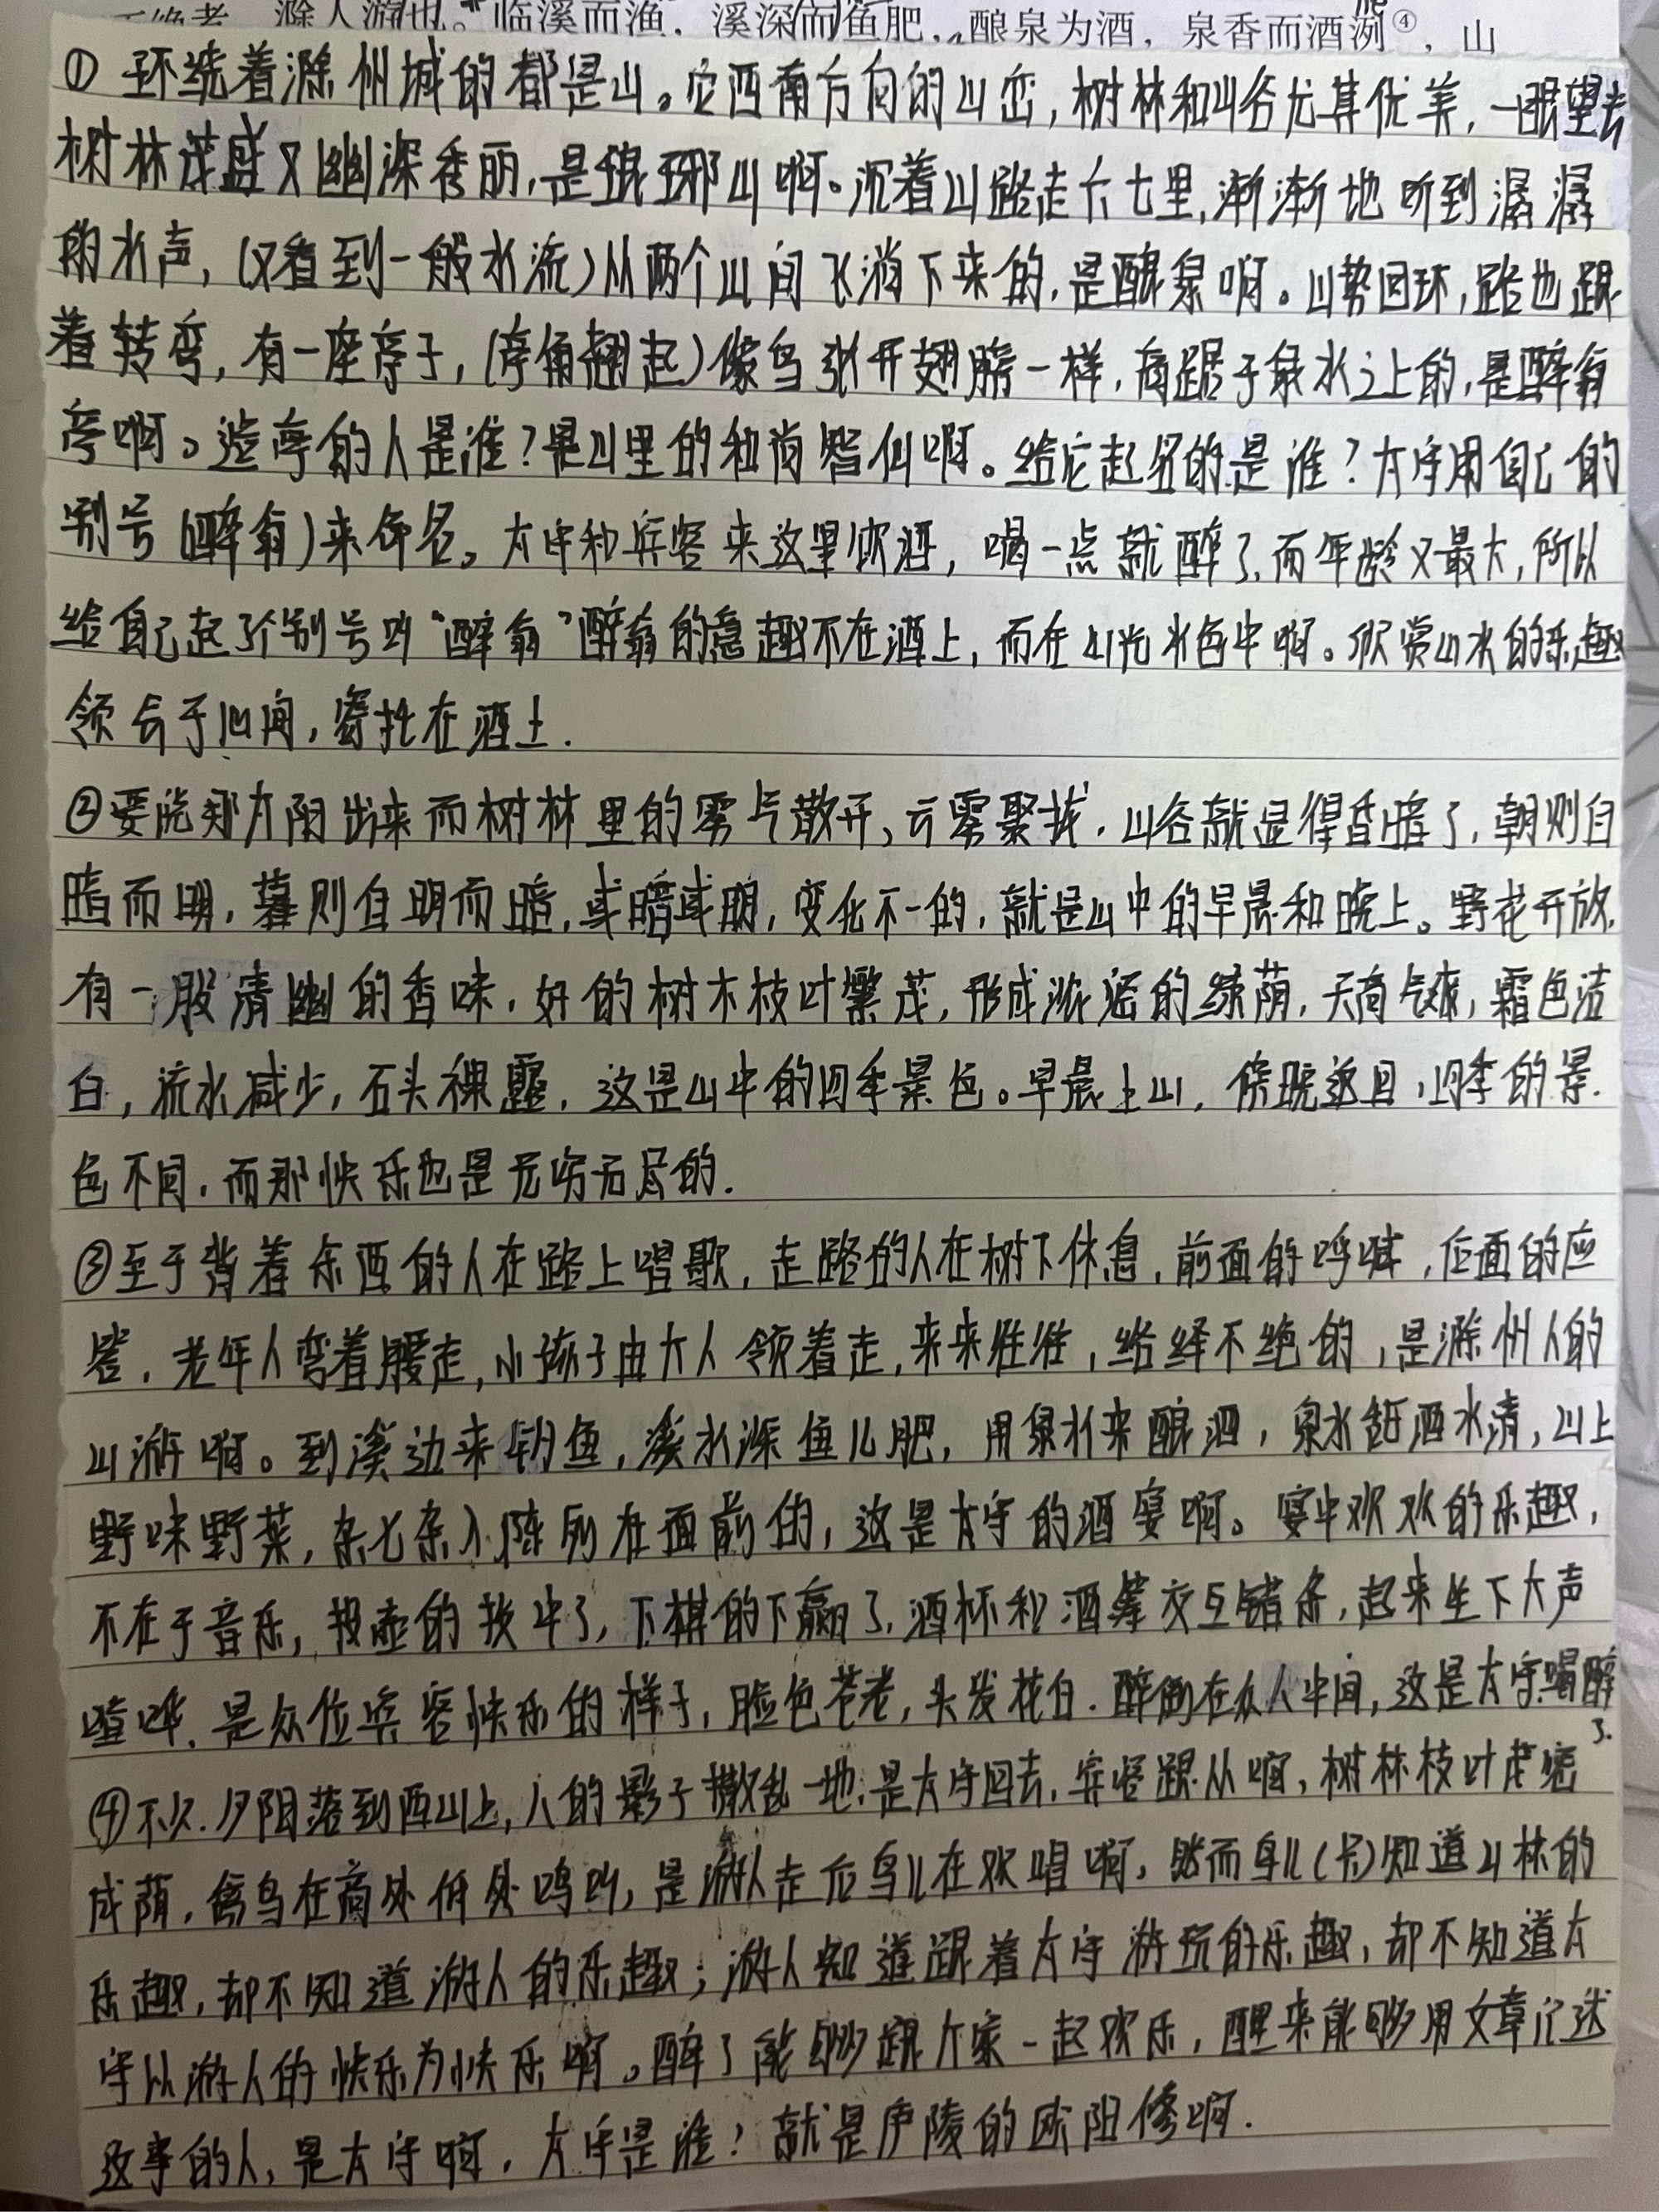 临溪而渔，溪深而鱼肥，酿泉为酒，泉香而酒洌④，山
①环绕着滁州城的都是山。它西南方向的山峦，树林和山谷尤其优美，一眼望去
树林茂盛又幽深秀丽，是琅琊山啊。沉着山路走六七里，渐渐地听到潺潺
的水声，（又看到一般水流）从两个山间飞淌下来的，是酿泉啊。山势回环，路也跟
着转弯，有一座亭子，（亭角翘起）像鸟张开翅膀一样，高踞于泉水之上的，是醉翁
亭啊。造亭的人是谁？是山里的和尚智仙啊。给它起名的是谁？太守用自己的
别号（醉翁）来命名。太守和宾客来这里饮酒，喝一点就醉了，而年龄又最大，所以
给自己起了个别号叫“醉翁”醉翁的意趣不在酒上，而在山光水色中啊。欣赏山水的乐趣
领会于心间，寄托在酒上.
②要说那太阳出来而树林里的雾气散开，云雾聚拢，山谷就显得昏暗了，朝则自
暗而明，暮则自明而暗，或暗或明，变化不一的，就是山中的早晨和晚上。野花开放，
有一股清幽的香味，好的树木枝叶繁茂，形成浓密的绿荫，天高气爽，霜色洁
白，流水减少，石头裸露，这是山中的四季景色。早晨上山，傍晚返回，四季的景
色不同，而那快乐也是无穷无尽的.
③至于背着东西的人在路上唱歌，走路的人在树下休息，前面的呼喊，后面的应
答，老年人弯着腰走，小孩子由大人领着走，来来往往，络绎不绝的，是滁州人的
山游啊。到溪边来钓鱼，溪水深鱼儿肥，用泉水来酿酒，泉水甜酒水清，山上
野味野菜，杂七杂八陈列在面前的，这是太守的酒宴啊。宴中欢欢的乐趣，
不在于音乐，投壶的投中了，下棋的下赢了，酒杯和酒筹交互错杂，起来坐下大声
喧哗，是众位宾客快乐的样子，脸色苍老，头发花白，醉倒在众人中间，这是太守喝醉
了.
④不久，夕阳落到西山上，人的影子撒乱一地，是太守回去，宾客跟从啊，树林枝叶茂密
成荫，禽鸟在高处低处鸣叫，是游人走后鸟儿在欢唱啊，然而鸟儿（只）知道山林的
乐趣，却不知道游人的乐趣；游人知道跟着太守游玩的乐趣，却不知道太
守以游人的快乐为快乐啊。醉了能够跟大家一起欢乐，醒来能够用文章记述
这事的人，是太守啊，太守是谁？就是庐陵的欧阳修啊.